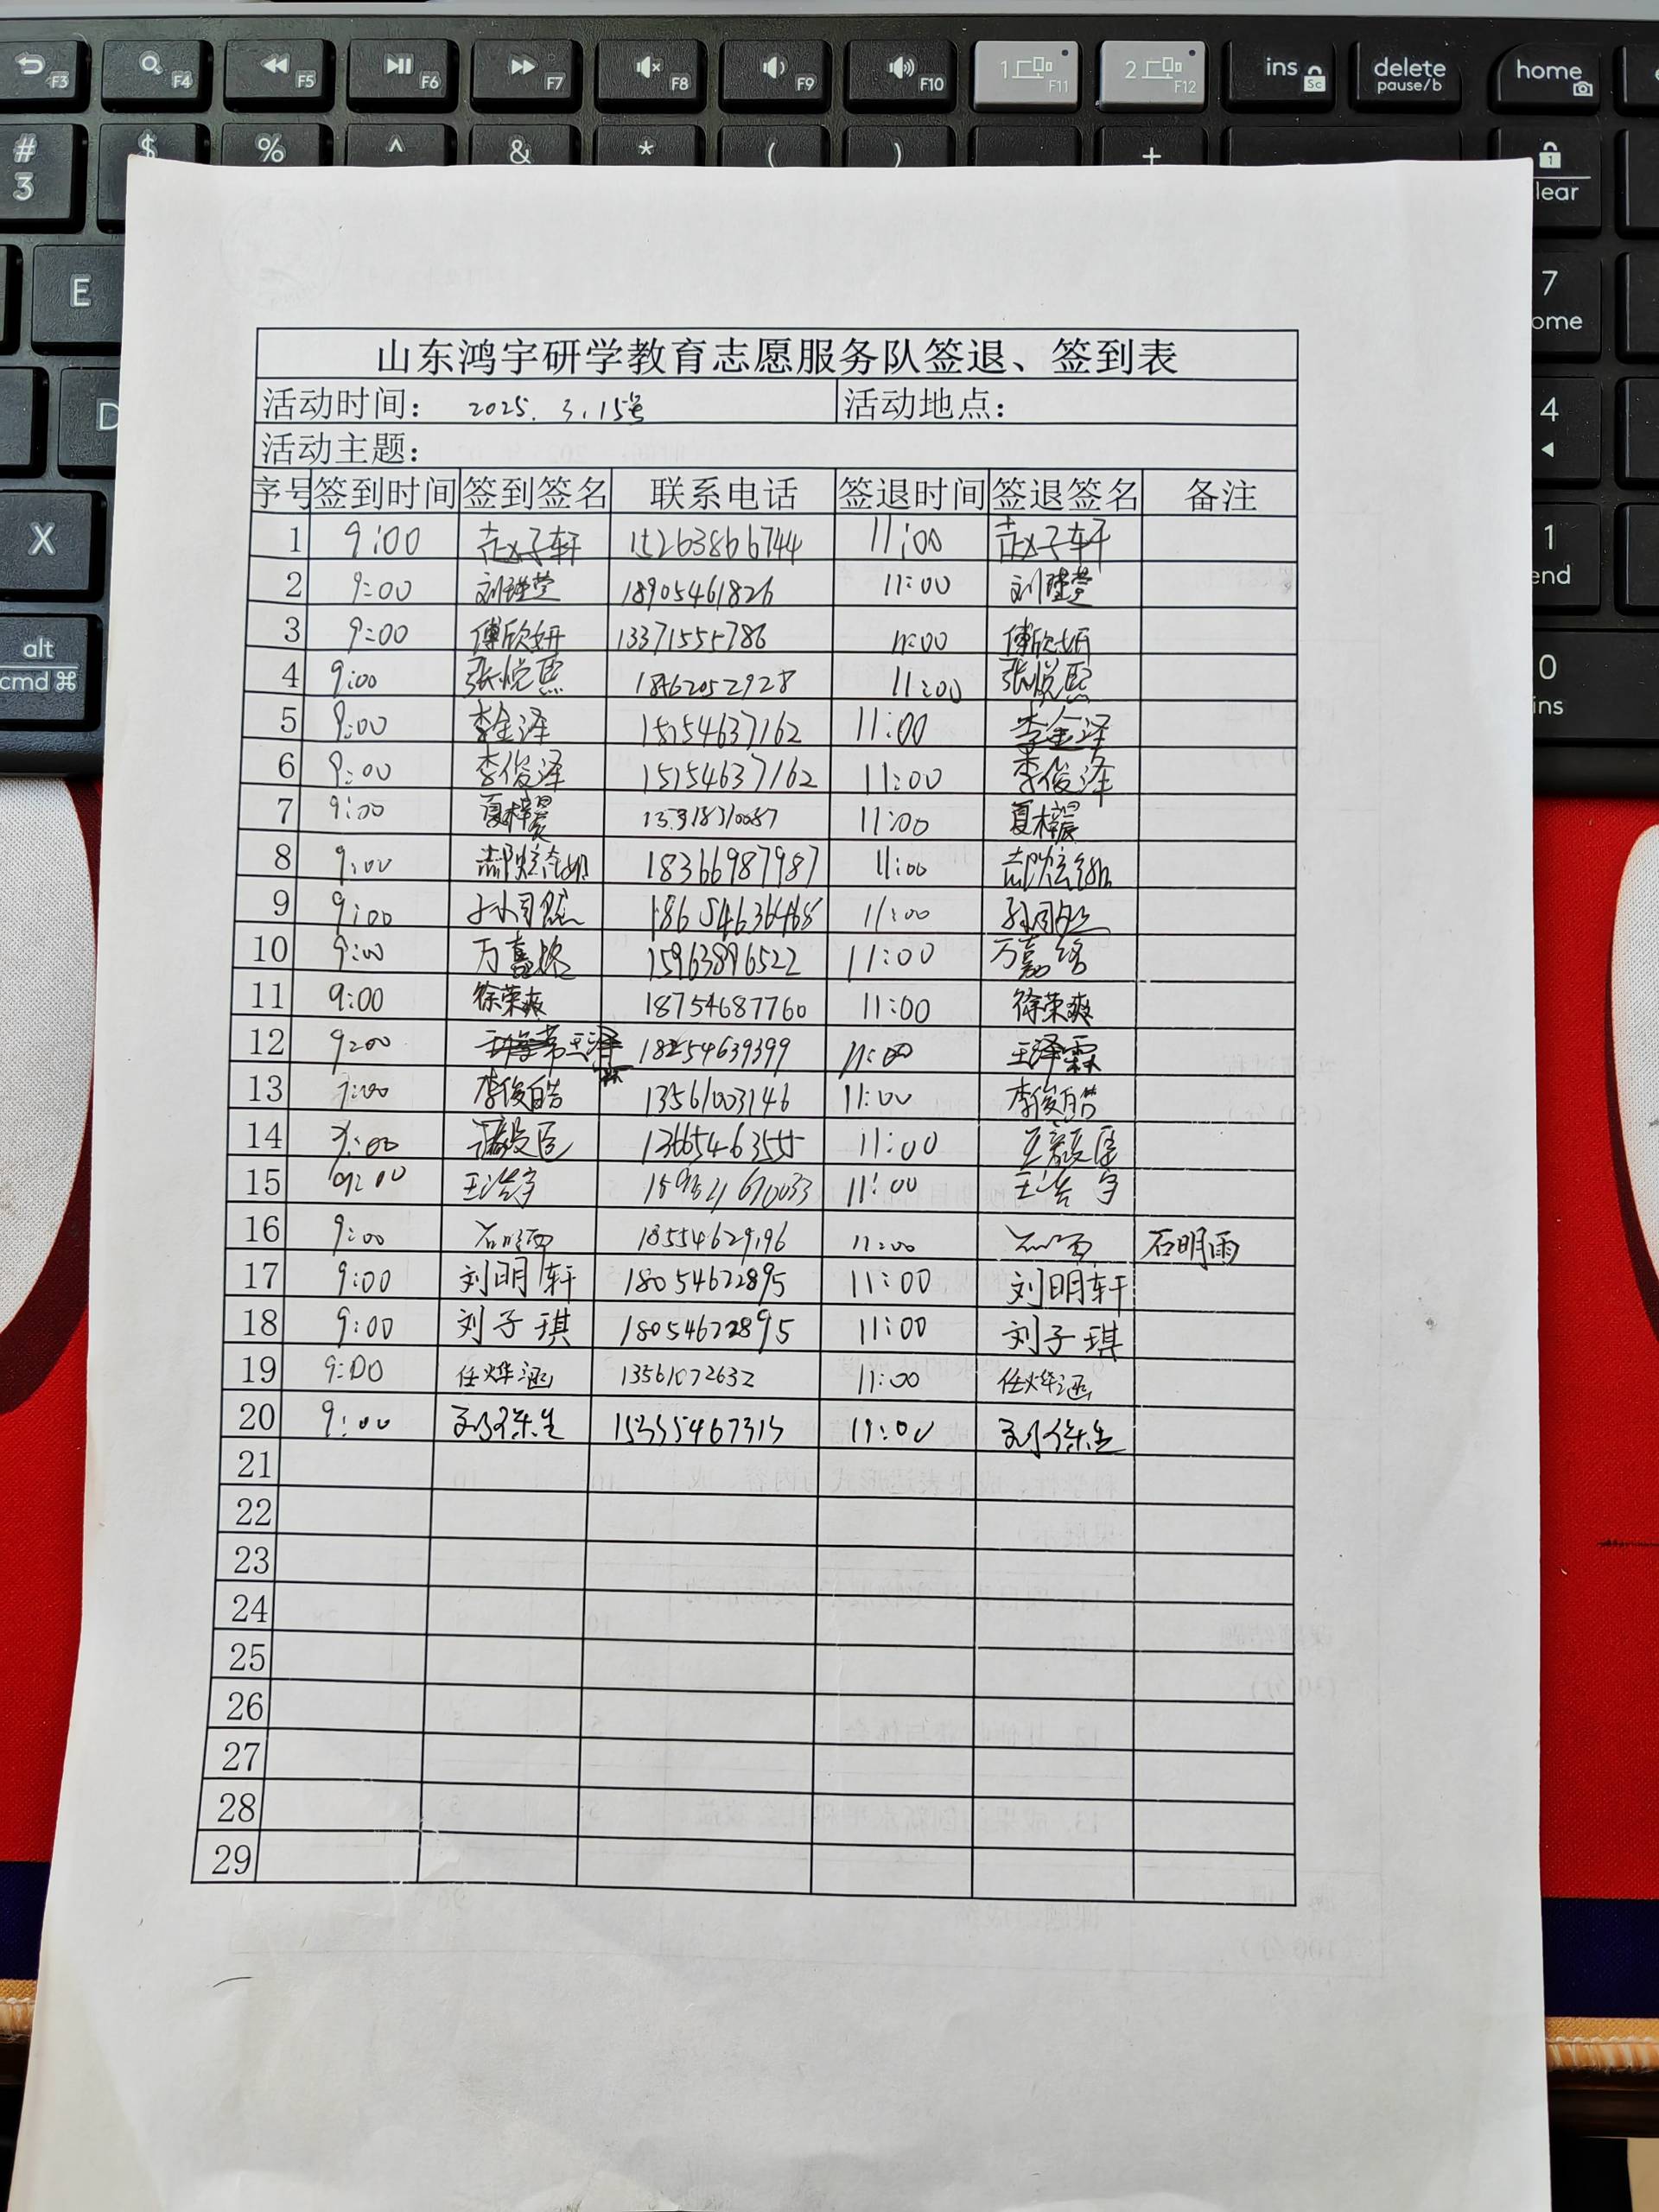 F3 F4 F5 F6 F7 F8 F9 F10 1 F11 2 F12 ins Sc delete pause/b home
# 3 $ % ^ & * ( ) + 1 lear
E 7 ome
D 4
X 1 end
alt cmd ⌘ 0 ins
山东鸿宇研学教育志愿服务队签退、签到表
活动时间： 2025. 3.15号 活动地点：
活动主题：
序号 签到时间 签到签名 联系电话 签退时间 签退签名 备注
1 9:00 赵子轩 15263866744 11:00 赵子轩
2 9:00 刘 18905461826 11:00 刘
3 9:00 傅欣妍 13371555786 11:00 傅欣妍
4 9:00 张悦熙 18562052928 11:00 张悦熙
5 9:00 李金泽 15154637162 11:00 李金泽
6 9:00 李俊泽 15154637162 11:00 李俊泽
7 9:00 夏梓晨 11:00 夏梓晨
8 9:00 18366987987 11:00
9 9:00 11:00
10 9:00 万嘉 15963896522 11:00 万嘉
11 9:00 徐荣爽 18754687760 11:00 徐荣爽
12 9:00 王泽霖 18254639399 11:00 王泽霖
13 9:00 李俊皓 13561003146 11:00 李俊皓
14 9:00 13665463555 11:00
15 9:00 王浩宇 11:00 王浩宇
16 9:00 石明雨 18554629196 11:00 石明雨 石明雨
17 9:00 刘明轩 18054672895 11:00 刘明轩
18 9:00 刘子琪 18054672895 11:00 刘子琪
19 9:00 任烨涵 13561072632 11:00 任烨涵
20 9:00 11:00
21
22
23
24
25
26
27
28
29